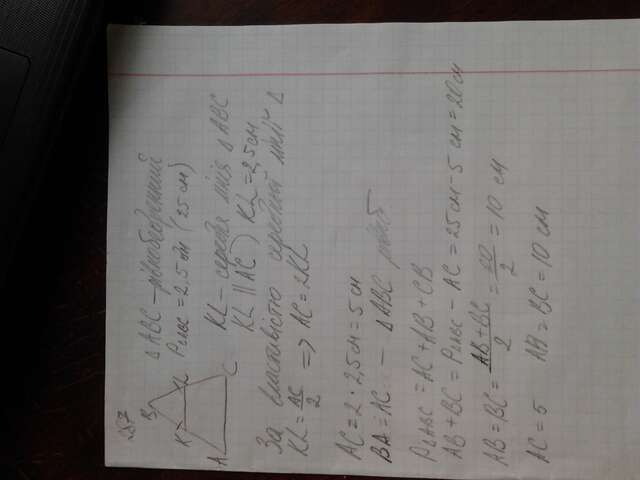 287
B
K L
A C
Δ ABC – рівнобедренний
P△ABC = 2,5 дм (25 см)
KL – середня лінія Δ ABC
KL || AC) KL = 2,5 см
За властивістю середньої лінії Δ
KL = AC/2 => AC = 2KL
AC = 2 · 2,5 см = 5 см
BA = AC – Δ ABC рівноб
P△ABC = AC + AB + CB
AB + BC = P△ABC – AC = 25 см – 5 см = 20 см
AB = BC = AB + BC/2 = 20/2 = 10 см
AC = 5 AB = BC = 10 см